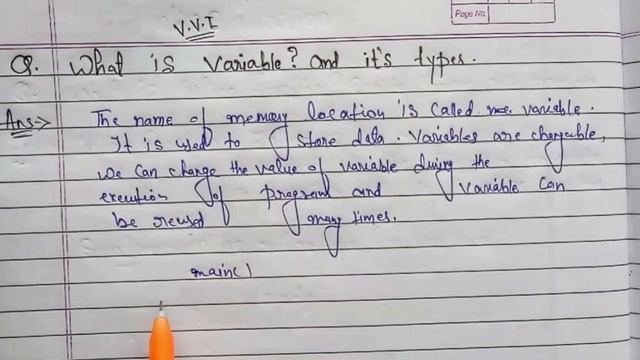 Page No.
V.V.I
Q. What is Variable? and it's types.
Ans:-> The name of memory location is called variable.
It is used to store data. Variables are changeable,
we can change the value of variable during the
execution of program and variable can
be reused many times.
main()